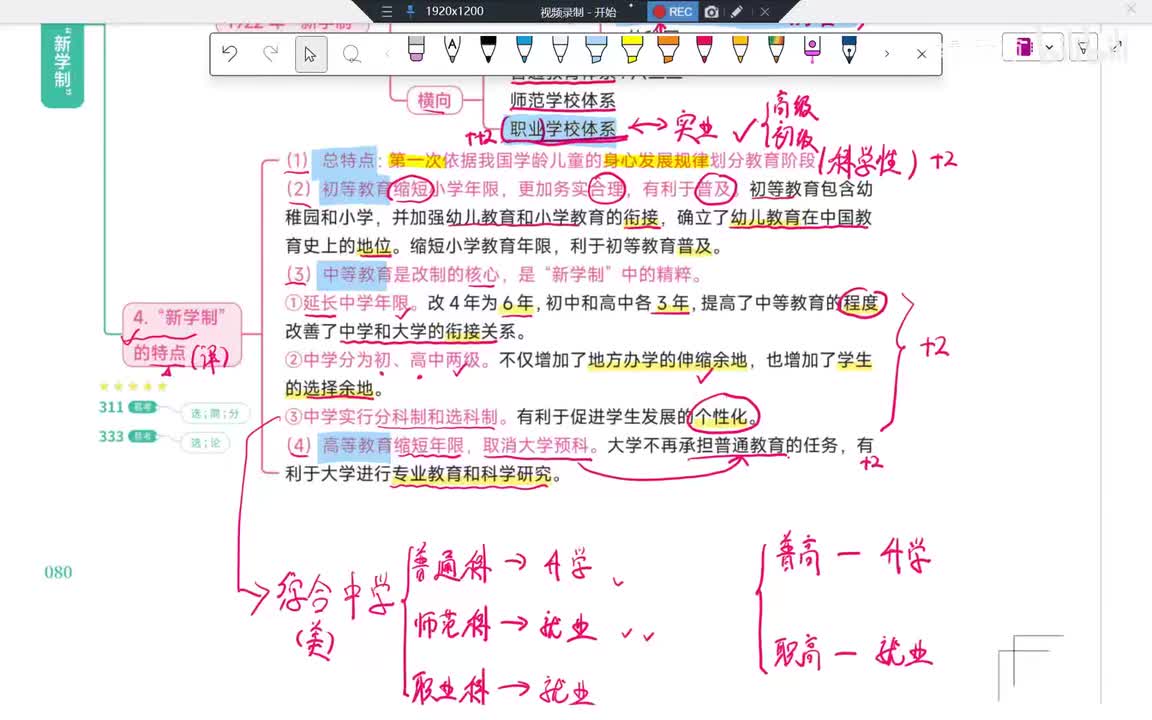 1920x1200
视频录制 - 开始
REC
“新学制”
横向
师范学校体系
职业学校体系
+2
实业
高级
初级
(1) 总特点：第一次依据我国学龄儿童的身心发展规律划分教育阶段
(科学性) +2
(2) 初等教育缩短小学年限，更加务实合理，有利于普及。初等教育包含幼
稚园和小学，并加强幼儿教育和小学教育的衔接，确立了幼儿教育在中国教
育史上的地位。缩短小学教育年限，利于初等教育普及。
(3) 中等教育是改制的核心，是“新学制”中的精粹。
①延长中学年限。改 4 年为 6 年，初中和高中各 3 年，提高了中等教育的程度
改善了中学和大学的衔接关系。
②中学分为初、高中两级。不仅增加了地方办学的伸缩余地，也增加了学生
的选择余地。
③中学实行分科制和选科制。有利于促进学生发展的个性化。
+2
(4) 高等教育缩短年限，取消大学预科。大学不再承担普通教育的任务，有
利于大学进行专业教育和科学研究。
+2
4. “新学制”
的特点
311
选；简；分
333
选；论
080
综合中学
(美)
普通科 → 升学
师范科 → 就业
职业科 → 就业
普高 — 升学
职高 — 就业